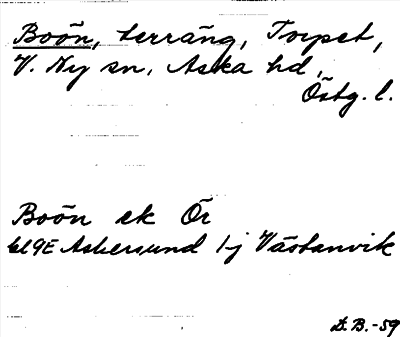 Boön, terräng, Torpet,
V. Ny sn, Aska hd,
Östg. l.
Boön ek Ör
bl 9E Askersund 1-j Västanvik
D. B. -59